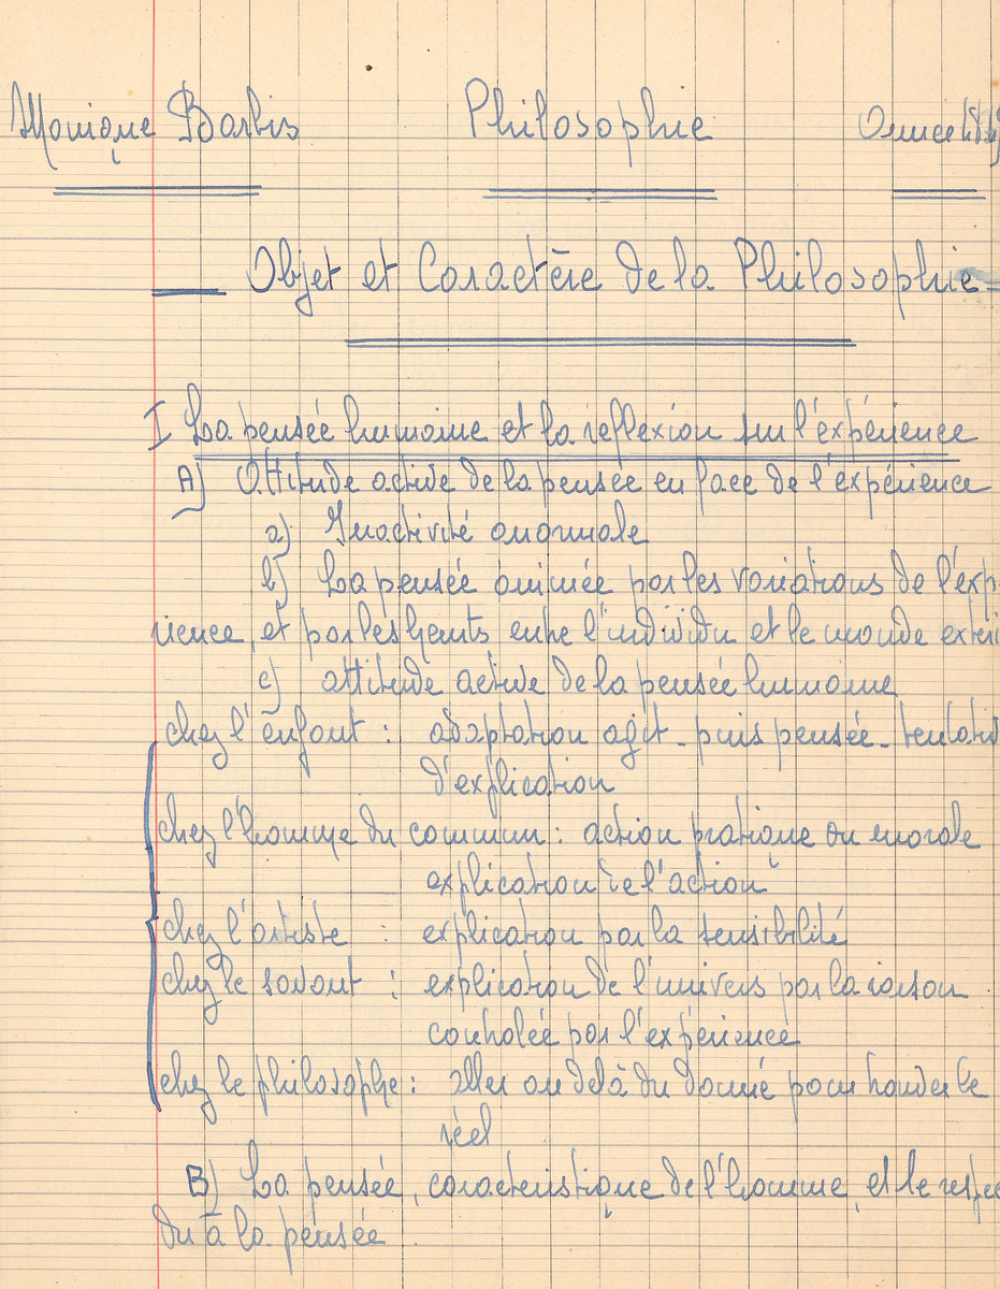 Monique Barbis Philosophie Année
Objet et Caractère de la Philosophie
I La pensée humaine et la réflexion sur l'expérience
A) Attitude active de la pensée en face de l'expérience
a) Inactivité anormale
b) La pensée animée par les variations de l'expé
rience, et par les heurts entre l'individu et le monde extéri
c) attitude active de la pensée humaine
chez l'enfant : adaptation agit - puis pensée - tentativ
d'explication
chez l'homme du commun : action pratique ou morale
explication de l'action
chez l'artiste : explication par la sensibilité
chez le savant : explication de l'univers par la raison
contrôlée par l'expérience
chez le philosophe : aller au delà du donné pour trouver le
réel
B) La pensée, caractéristique de l'homme, et le respec
du à la pensée.